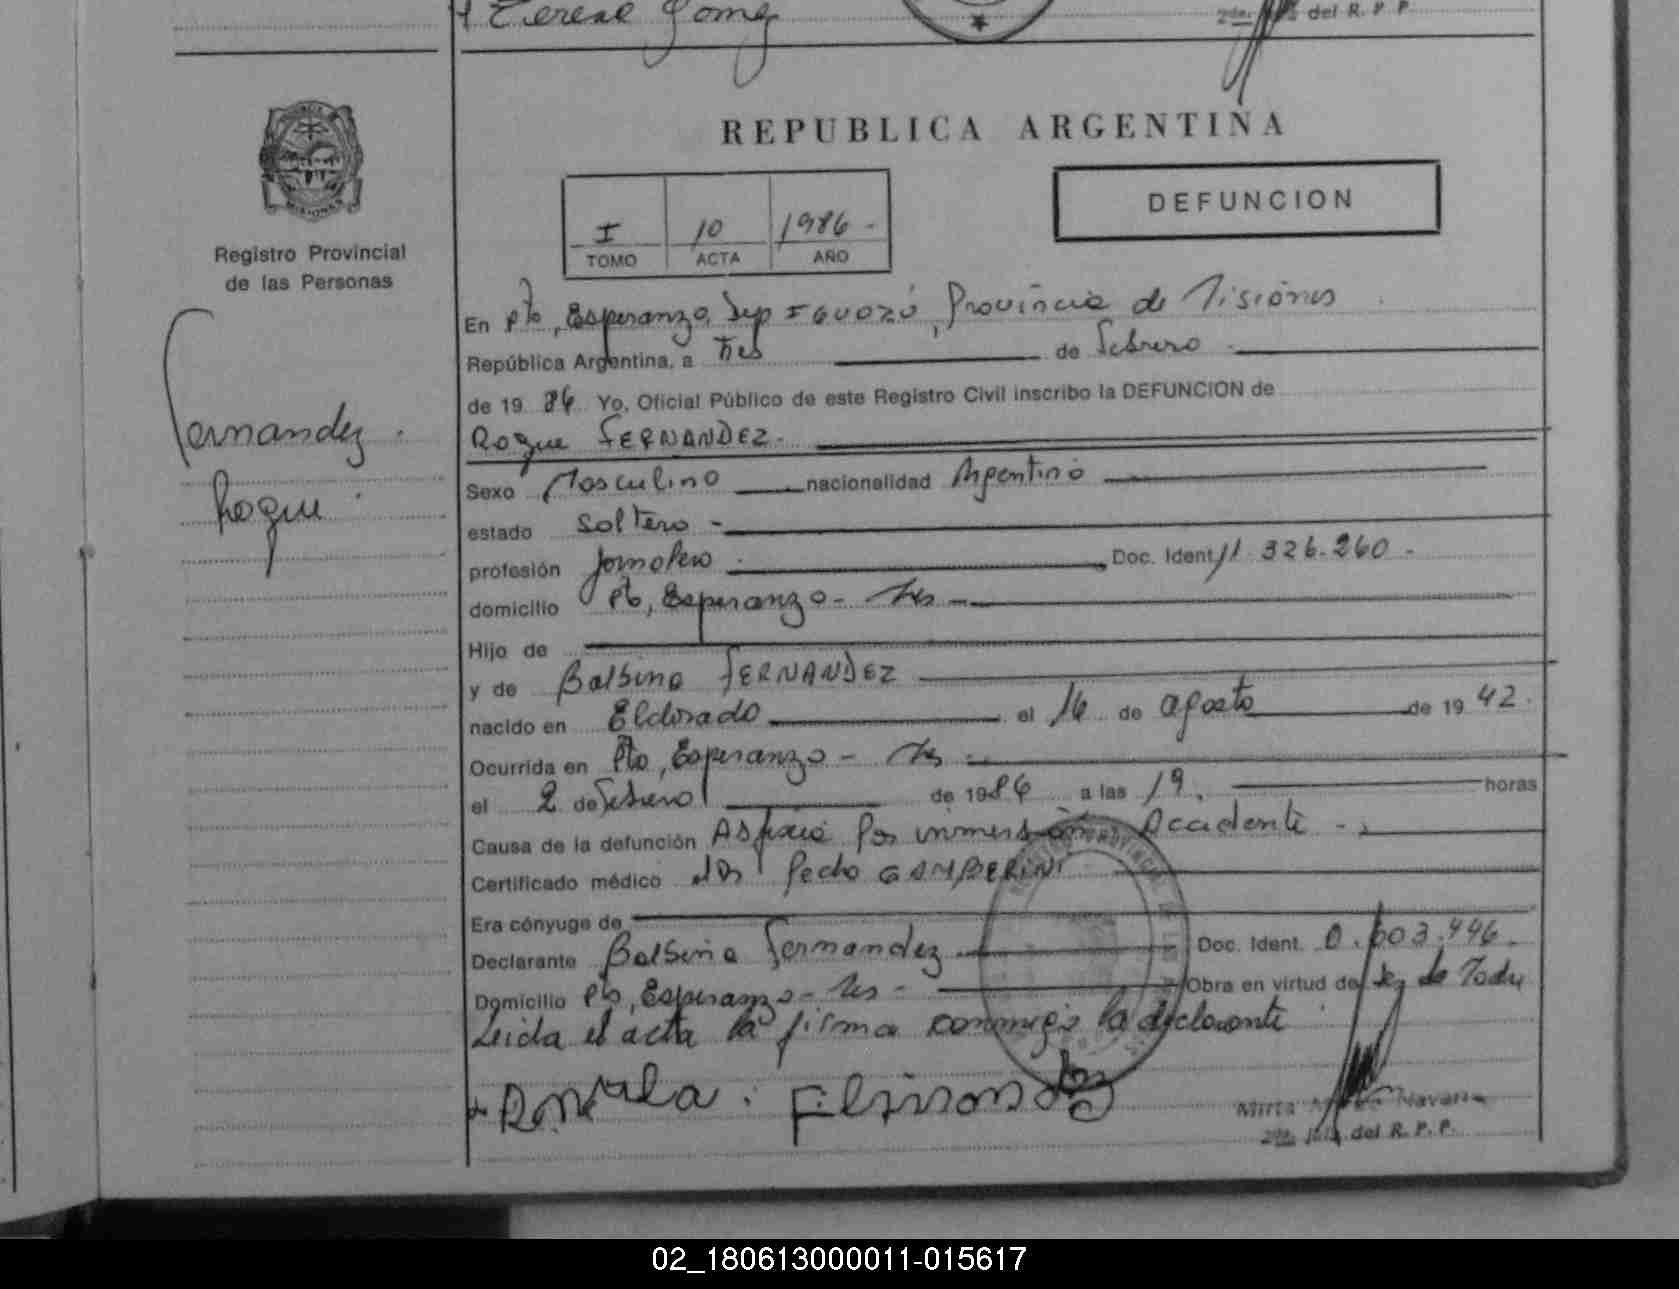 Terese Gomez
2da. Jefa del R. P. P.
REPUBLICA ARGENTINA
MISIONES
Registro Provincial
de las Personas
I 10 1986 -
TOMO ACTA AÑO
DEFUNCION
Fernandez.
Roque.
En Pto, Esperanza, Dep IGUAZÚ, Provincia de Misiones
República Argentina, a Tres de Febrero -
de 19 86 Yo, Oficial Público de este Registro Civil inscribo la DEFUNCION de
Roque FERNANDEZ.
Sexo Masculino nacionalidad Argentino
estado Soltero -
profesión Jornalero Doc. Ident. 11.326.260 -
domicilio Pto, Esperanza - Mes -
Hijo de
y de Balbina FERNANDEZ
nacido en Eldorado el 16 de agosto de 19 42.
Ocurrida en Pto, Esperanza - Mes -
el 2 de Febrero de 1986 a las 19. horas
Causa de la defunción Asfixia por inmersión Accidente -
Certificado médico Dr Pedro GAMBERINI
Era cónyuge de
Declarante Balbina Fernandez Doc. Ident. 0.603.446.
Domicilio Pto, Esperanza - Mes - Obra en virtud de
Leida el acta la firma conmigo la declarante
Mirta Navarro
2da. Jefa del R. P. P.
02_180613000011-015617